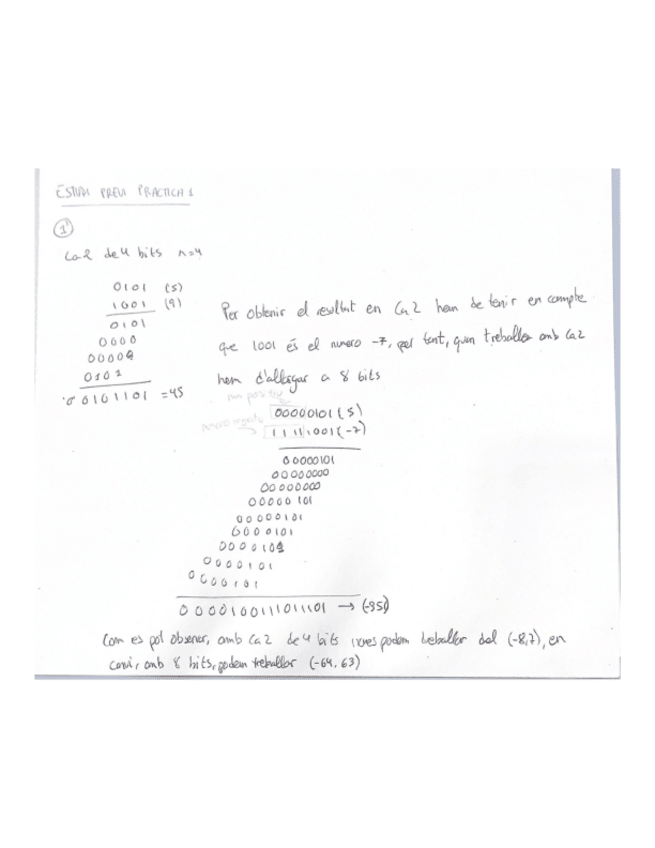 ESTUDI PREVI PRACTICA 1
1
Ca2 de 4 bits n=4
0101 (5)
1001 (9)
0101
0000
0000
0101
00101101 = 45
Per obtenir el resultat en Ca2 hem de tenir en compte
que 1001 és el numero -7, per tant, quan treballem amb Ca2
hem d'allargar a 8 bits
num positiu
00000101 (5)
numero negatiu
11111001 (-7)
00000101
00000000
00000000
00000101
00000101
0000101
0000101
0000101
0000101
0000100111011101 → (-35)
Com es pot observar, amb Ca2 de 4 bits podem treballar del (-8,7), en
canvi, amb 8 bits, podem treballar (-64, 63)